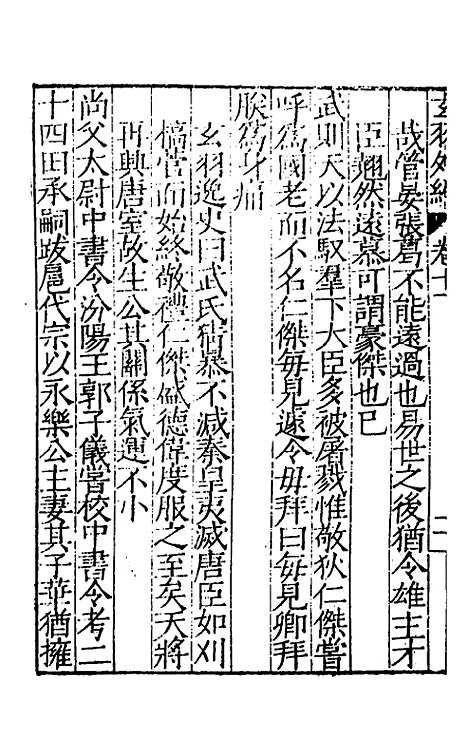 玄羽外編 卷十一
哉管晏張葛不能遠過也易世之後猶令雄主才
臣翹然遠慕可謂豪傑也已
武則天以法馭羣下大臣多被屠戮惟敬狄仁傑嘗
呼爲國老而不名仁傑每見遽令毋拜曰每見卿拜
朕爲身痛
玄羽逸史曰武氏猜暴不減秦皇夷滅唐臣如刈
菅而始終敬禮仁傑盛德偉度服之至矣天將
再興唐室故生公其關係氣運不小
尚父太尉中書令汾陽王郭子儀嘗校中書令考二
十四田承嗣跋扈代宗以永樂公主妻其子華猶擁